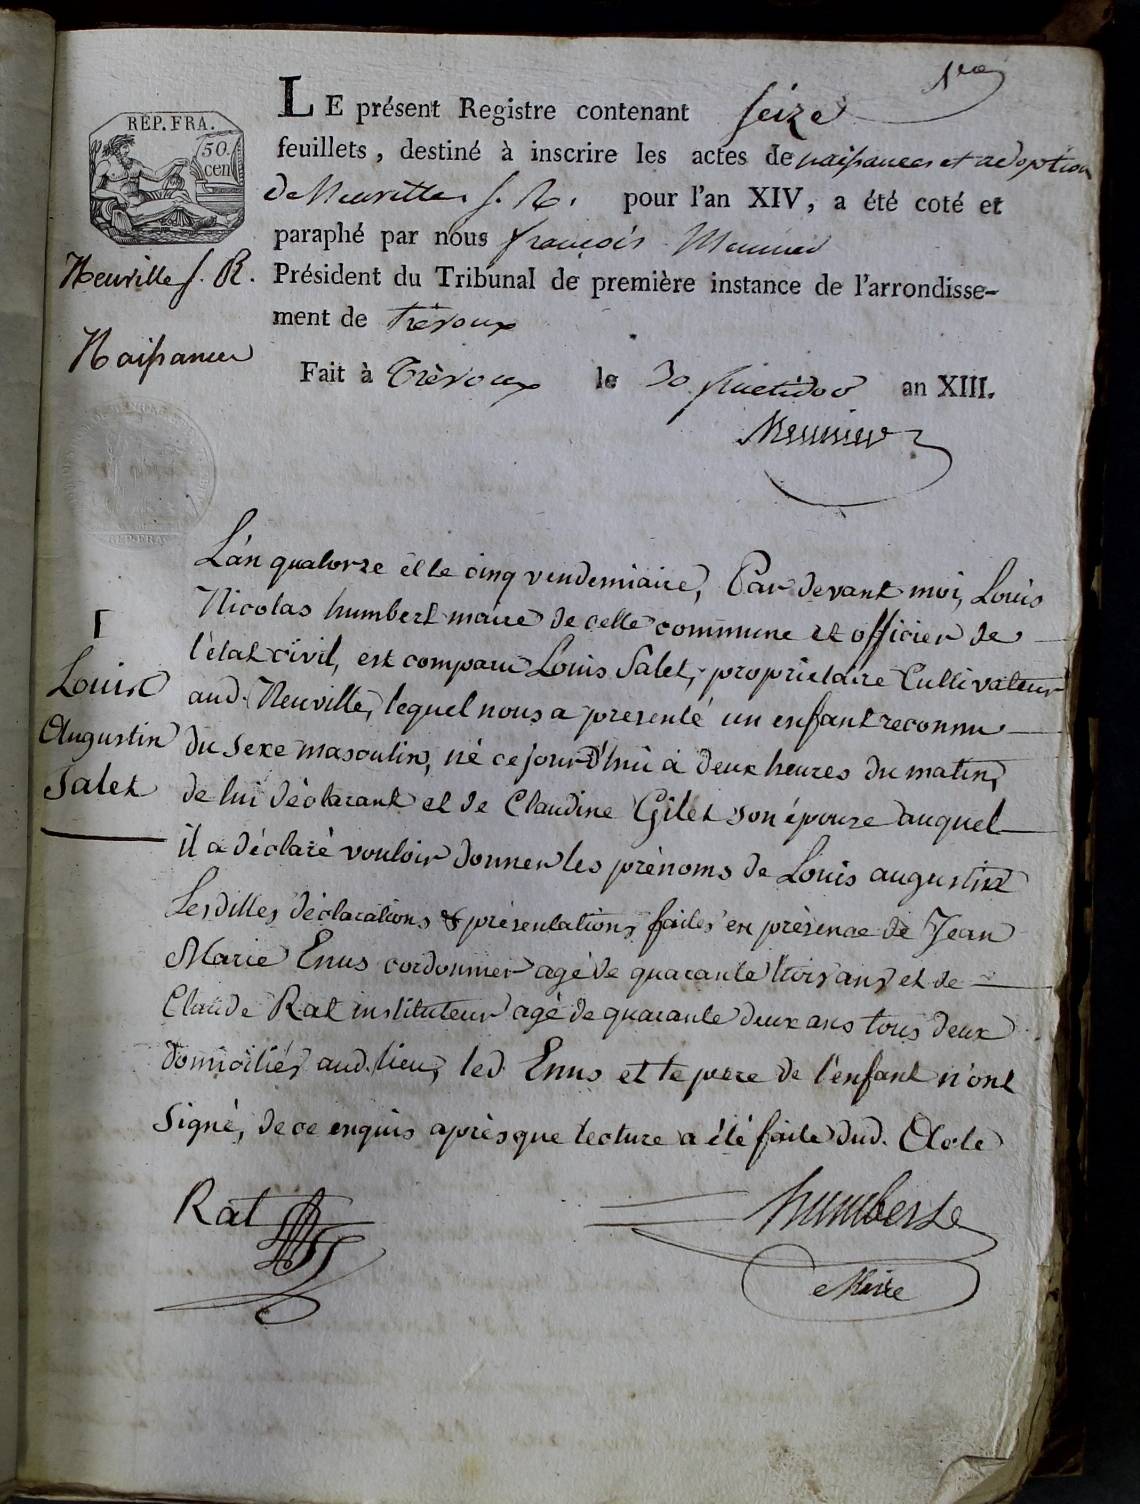 1re
LE présent Registre contenant seize
RÉP. FRA.
50.
cen
feuillets, destiné à inscrire les actes de naissances et adoption
de Neuville s. R. pour l'an XIV, a été coté et
paraphé par nous françois Meunier
Neuville s. R.
Président du Tribunal de première instance de l'arrondisse-
ment de trévoux
Naissances
Fait à Trévoux le 30 fructidor an XIII.
Meunier
RÉP. FRA.
L'an quatorze et le cinq vendemiaire, Par devant moi, Louis
Nicolas humbert maire de cette commune et officier de
l'état civil, est comparu Louis Salet, propriétaire Cultivateur
aud. Neuville, lequel nous a présenté un enfant reconnu
du sexe masculin, né ce jourd'hui à deux heures du matin,
de lui déclarant et de Claudine Gilet son épouse auquel
il a déclaré vouloir donner les prénoms de Louis augustin
Lesdittes déclarations & présentations faites en présence de Jean
Marie Enus cordonnier agé de quarante trois ans et de
Claude Rat instituteur agé de quarante deux ans tous deux
domiciliés aud. lieu, led. Enus et le pere de l'enfant n'ont
signé, de ce enquis après que lecture a été faite dud. Acte
1
Louis
Augustin
Salet
Rat
humbert
Maire